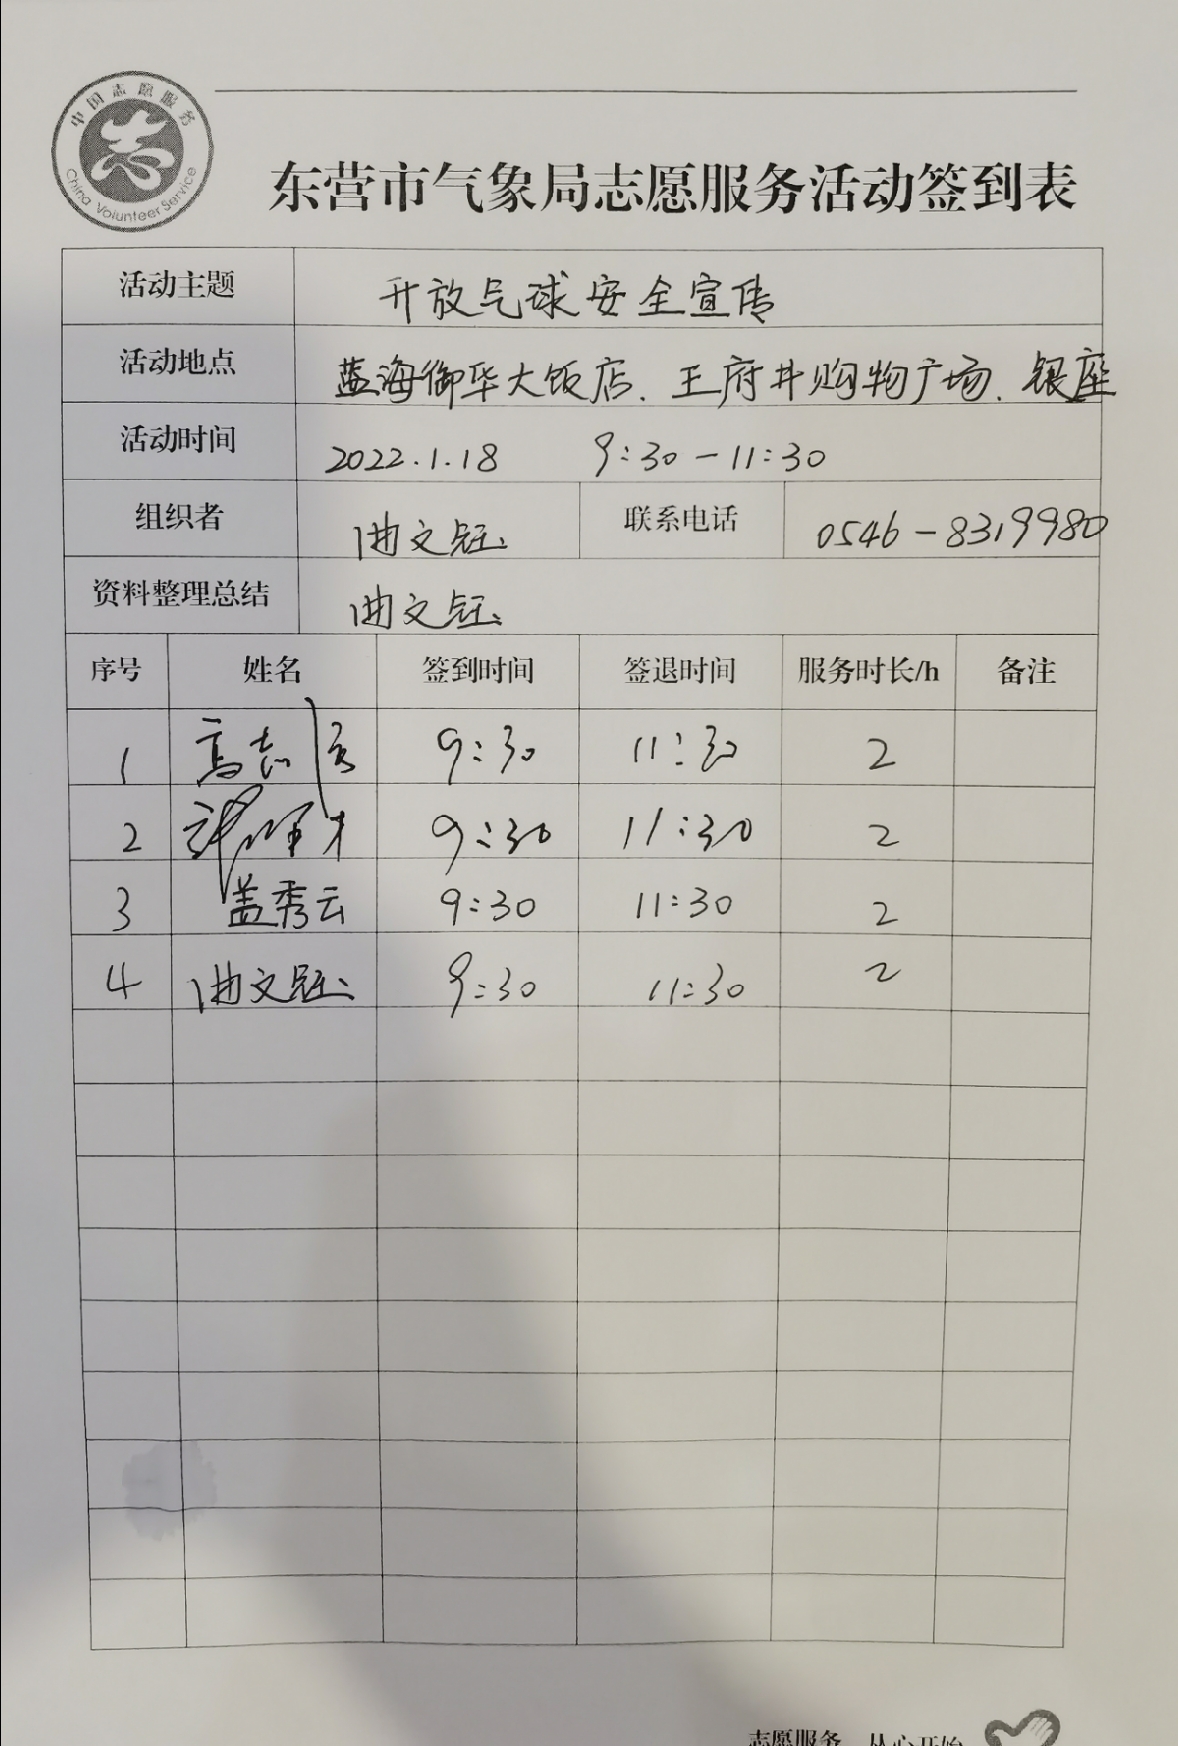 中国志愿服务
志
China Volunteer Service
东营市气象局志愿服务活动签到表
活动主题 开放气球安全宣传
活动地点 蓝海御华大饭店、王府井购物广场、银座
活动时间 2022.1.18 9:30-11:30
组织者 曲文钰 联系电话 0546-8319980
资料整理总结 曲文钰
序号 姓名 签到时间 签退时间 服务时长/h 备注
1 高志 9:30 11:30 2
2 9:30 11:30 2
3 盖秀云 9:30 11:30 2
4 曲文钰 9:30 11:30 2
志愿服务 从心开始